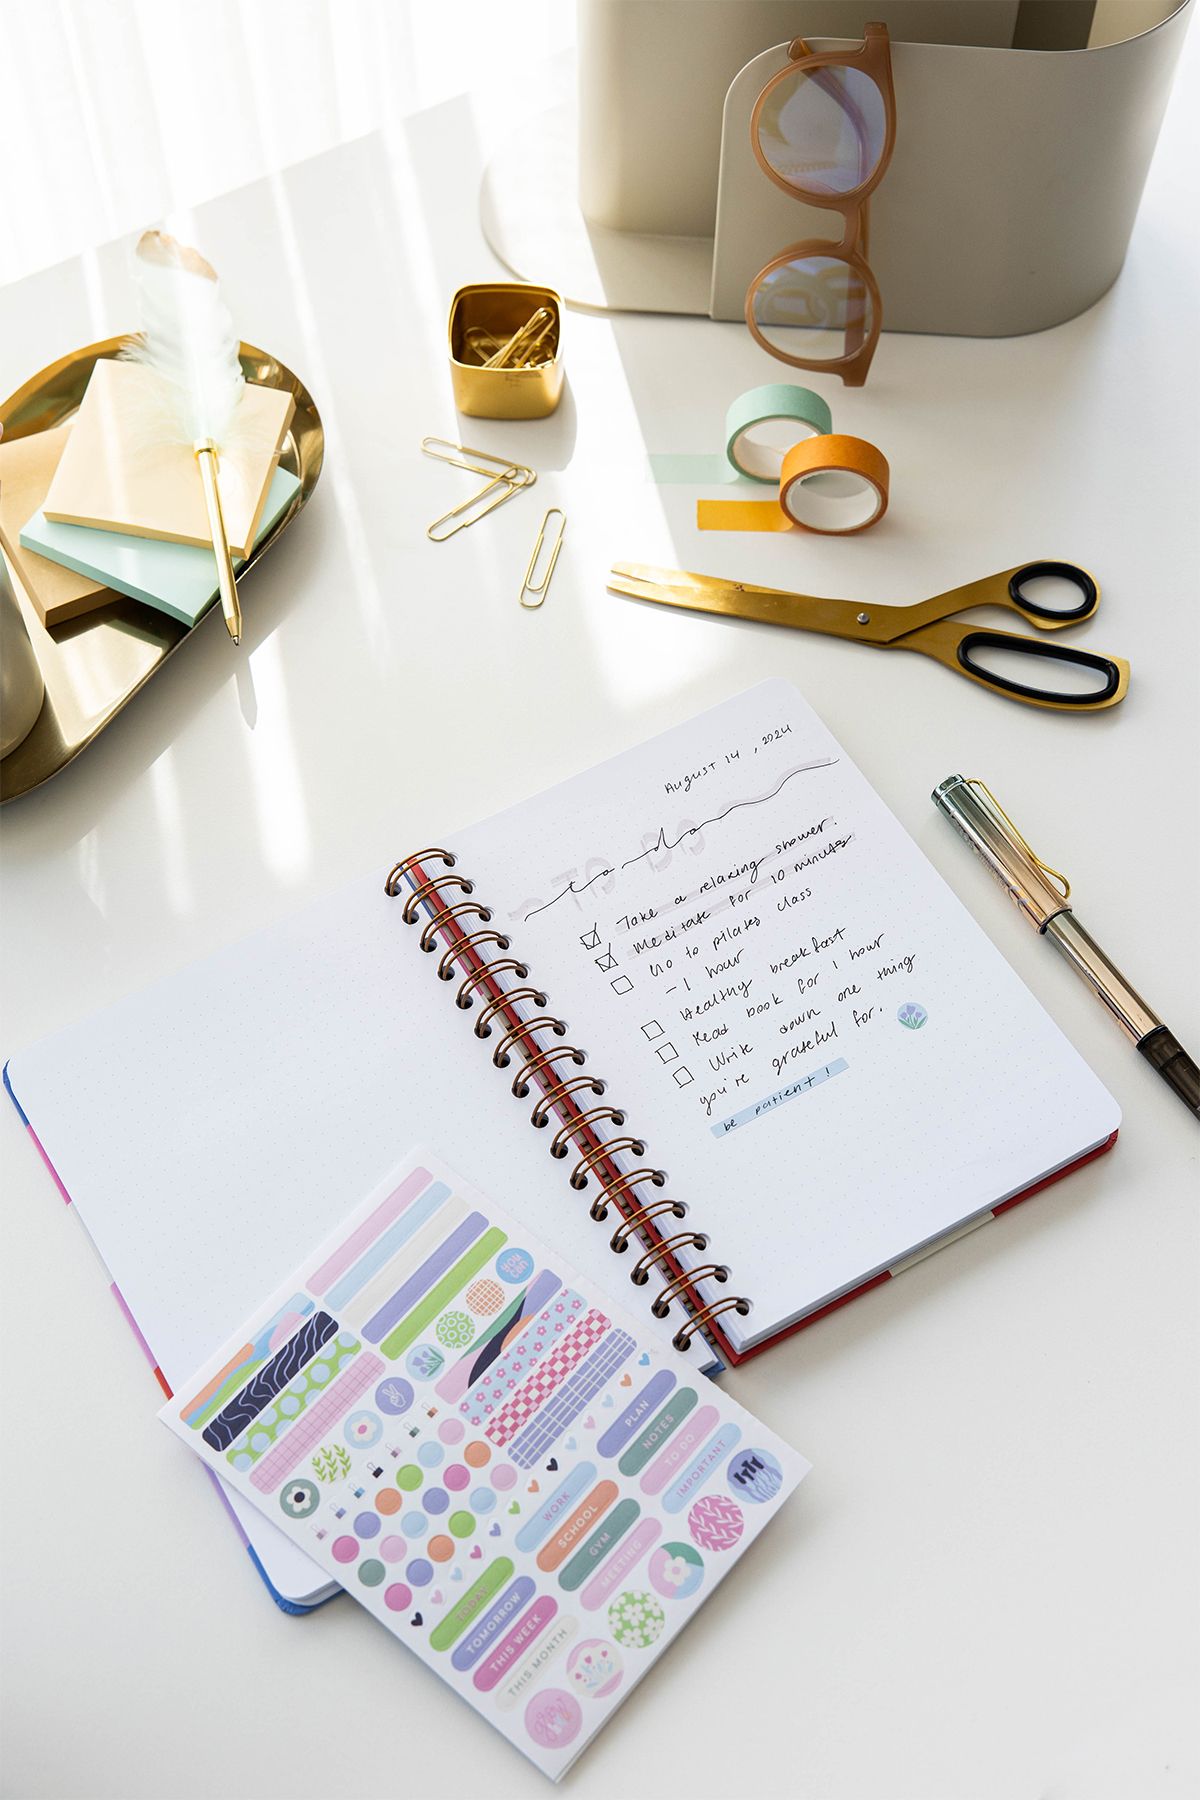 August 14, 2024
TO DO
to do
Take a relaxing shower.
Meditate for 10 minutes
Go to pilates class
- 1 hour
Healthy breakfast
Read book for 1 hour
Write down one thing
you're grateful for.
be patient!
you can
PLAN
NOTES
TO DO
IMPORTANT
WORK
SCHOOL
GYM
MEETING
TODAY
TOMORROW
THIS WEEK
THIS MONTH